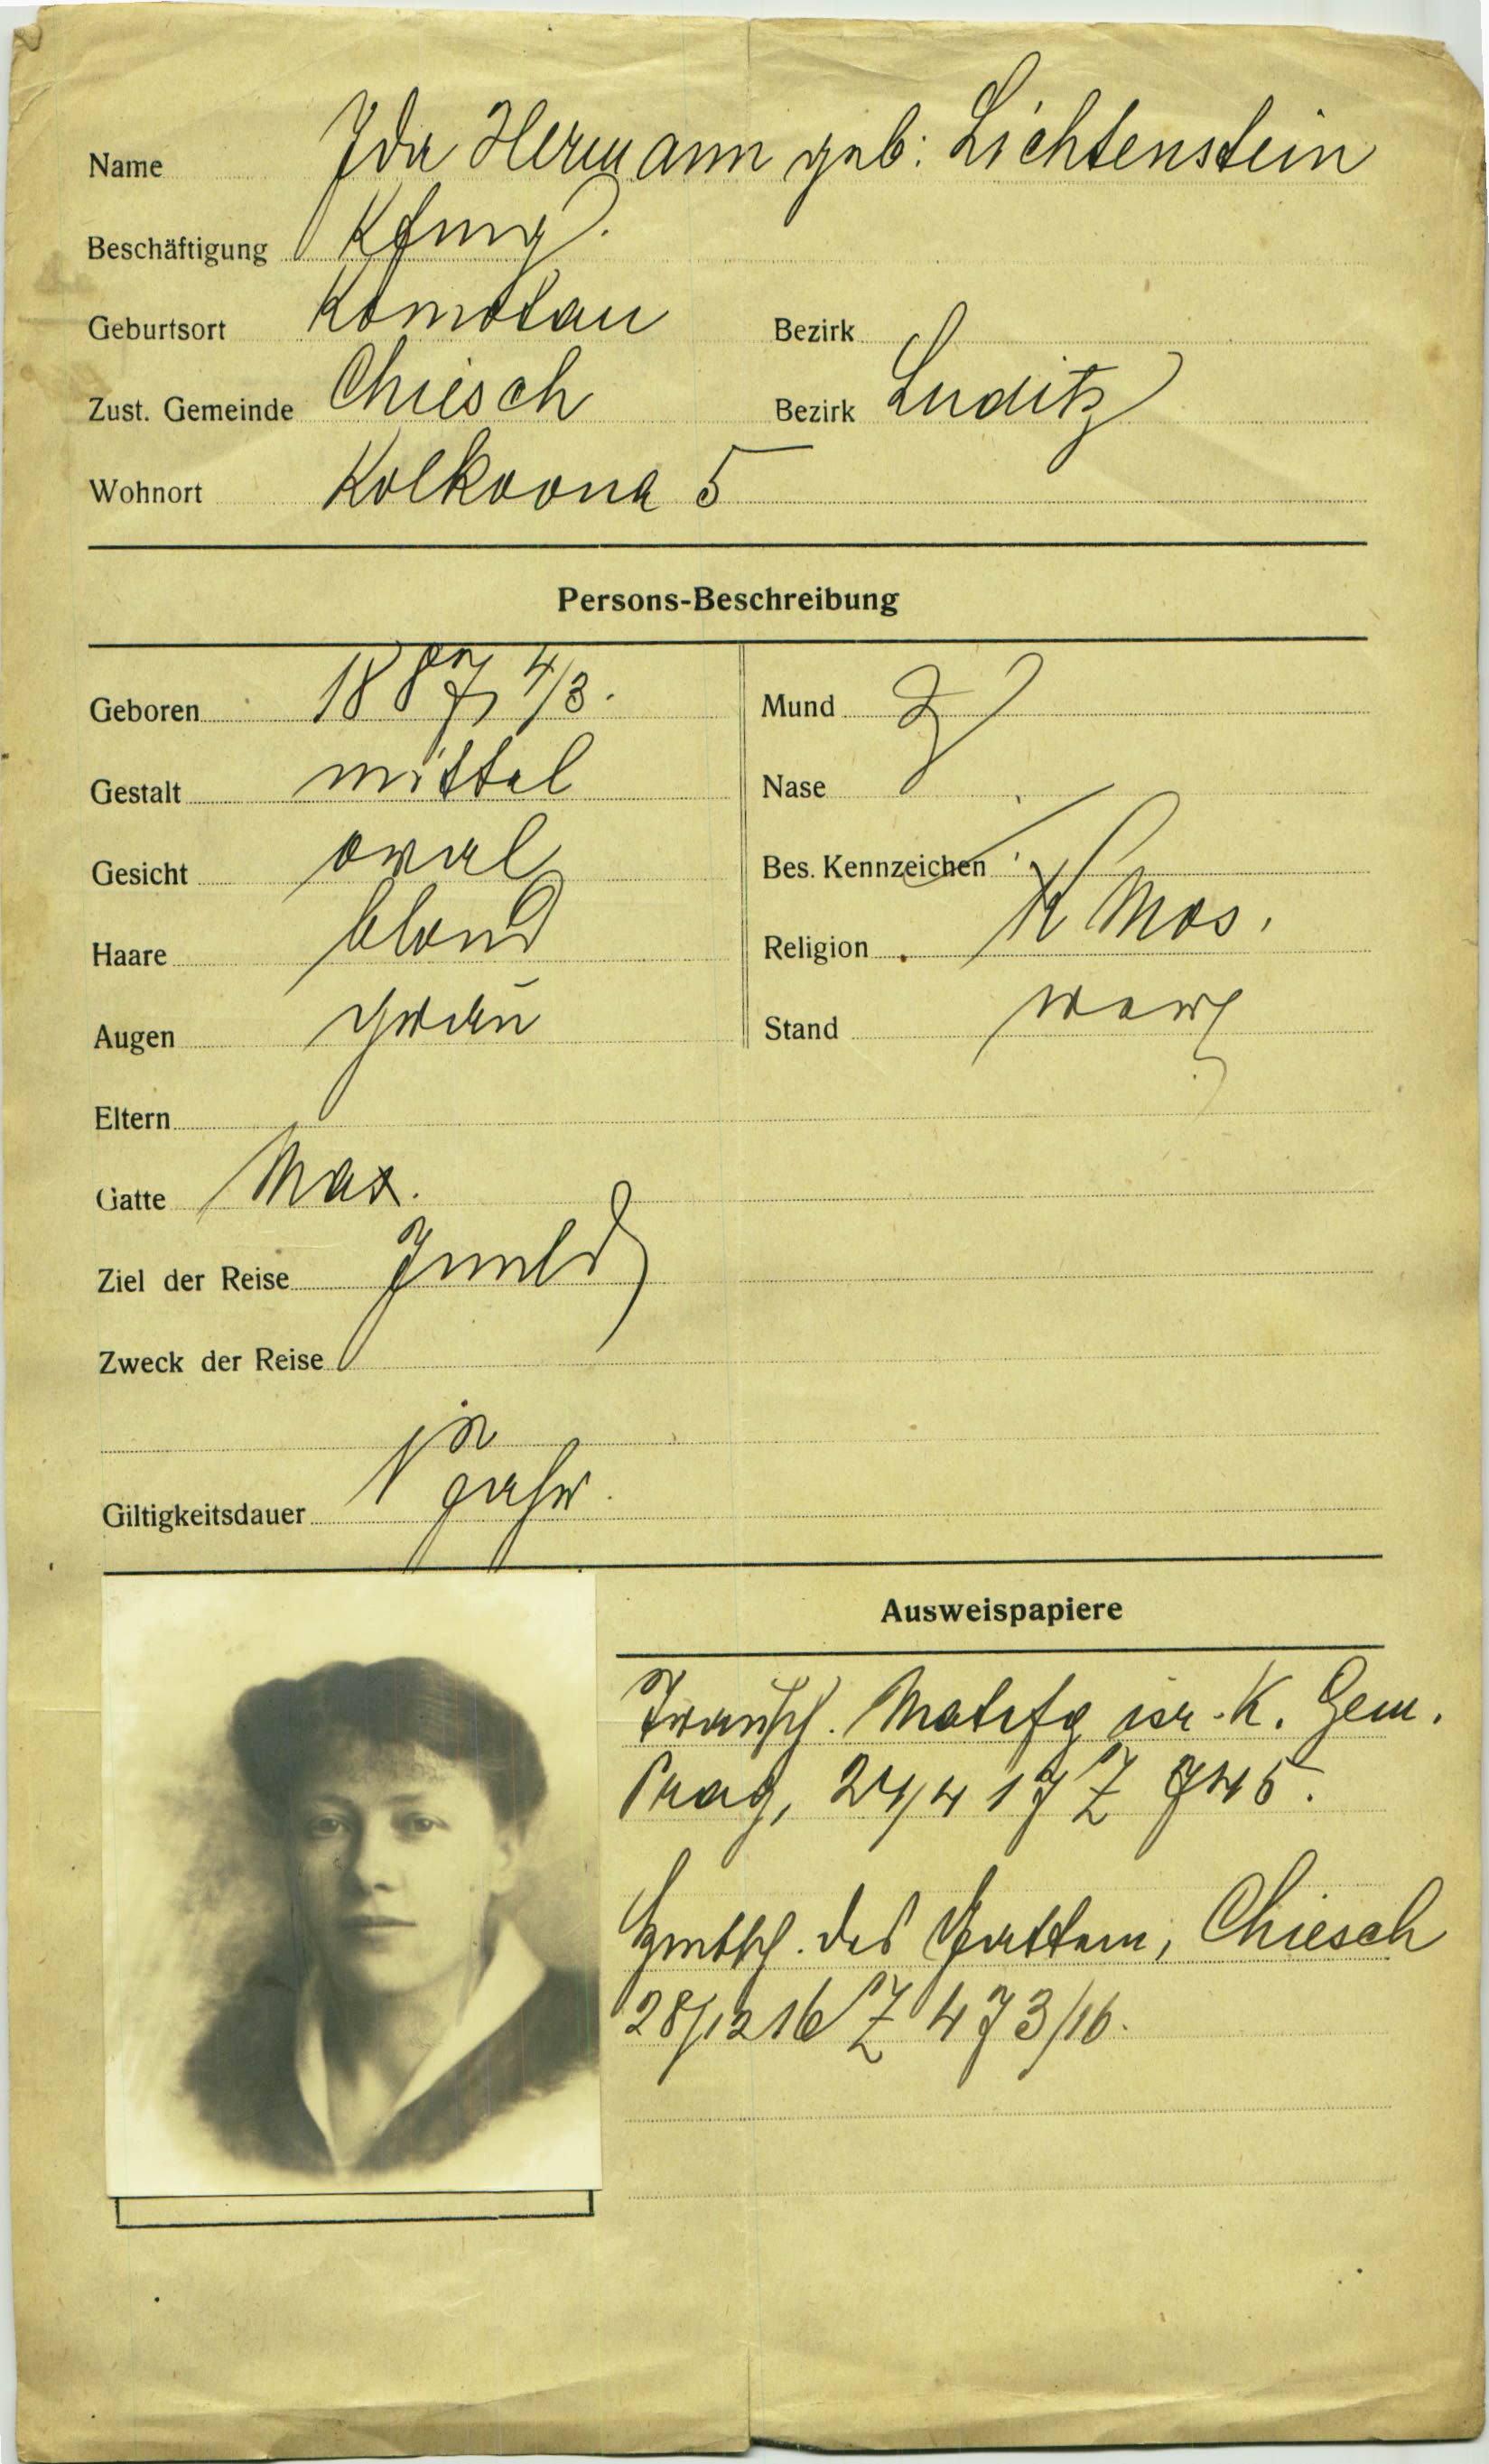 Name Ida Hermann geb: Lichtenstein
Beschäftigung
Geburtsort Komotau Bezirk
Zust. Gemeinde Chiesch Bezirk Luditz
Wohnort Kolkovna 5
Persons-Beschreibung
Geboren 1887 4/3.
Mund
Gestalt mittel
Nase
Gesicht oval
Bes. Kennzeichen
Haare blond
Religion Mos.
Augen grau
Stand
Eltern
Gatte Max.
Ziel der Reise Inld
Zweck der Reise
Giltigkeitsdauer 1 Jahr.
Ausweispapiere
Trausch. Matrfg isr. K. Gem.
Prag, 24/4 17 Z 745.
des Gatten, Chiesch
28/12 16 Z 473/16.